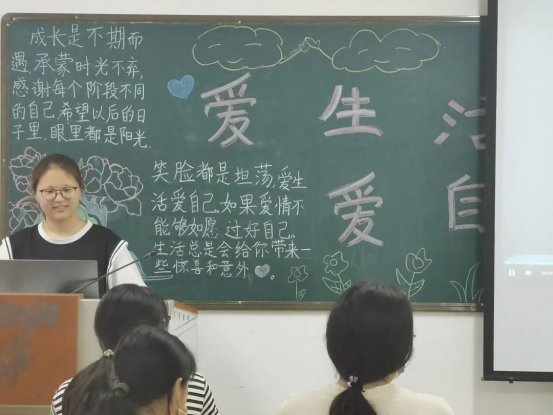 成长是不期而
遇,承蒙时光不弃,
感谢每个阶段不同
的自己,希望以后的日
子里,眼里都是阳光.
爱生活
爱自
笑脸都是坦荡,爱生
活爱自己,如果爱情不
能够如愿,过好自己。
生活总是会给你带来一
些惊喜和意外。